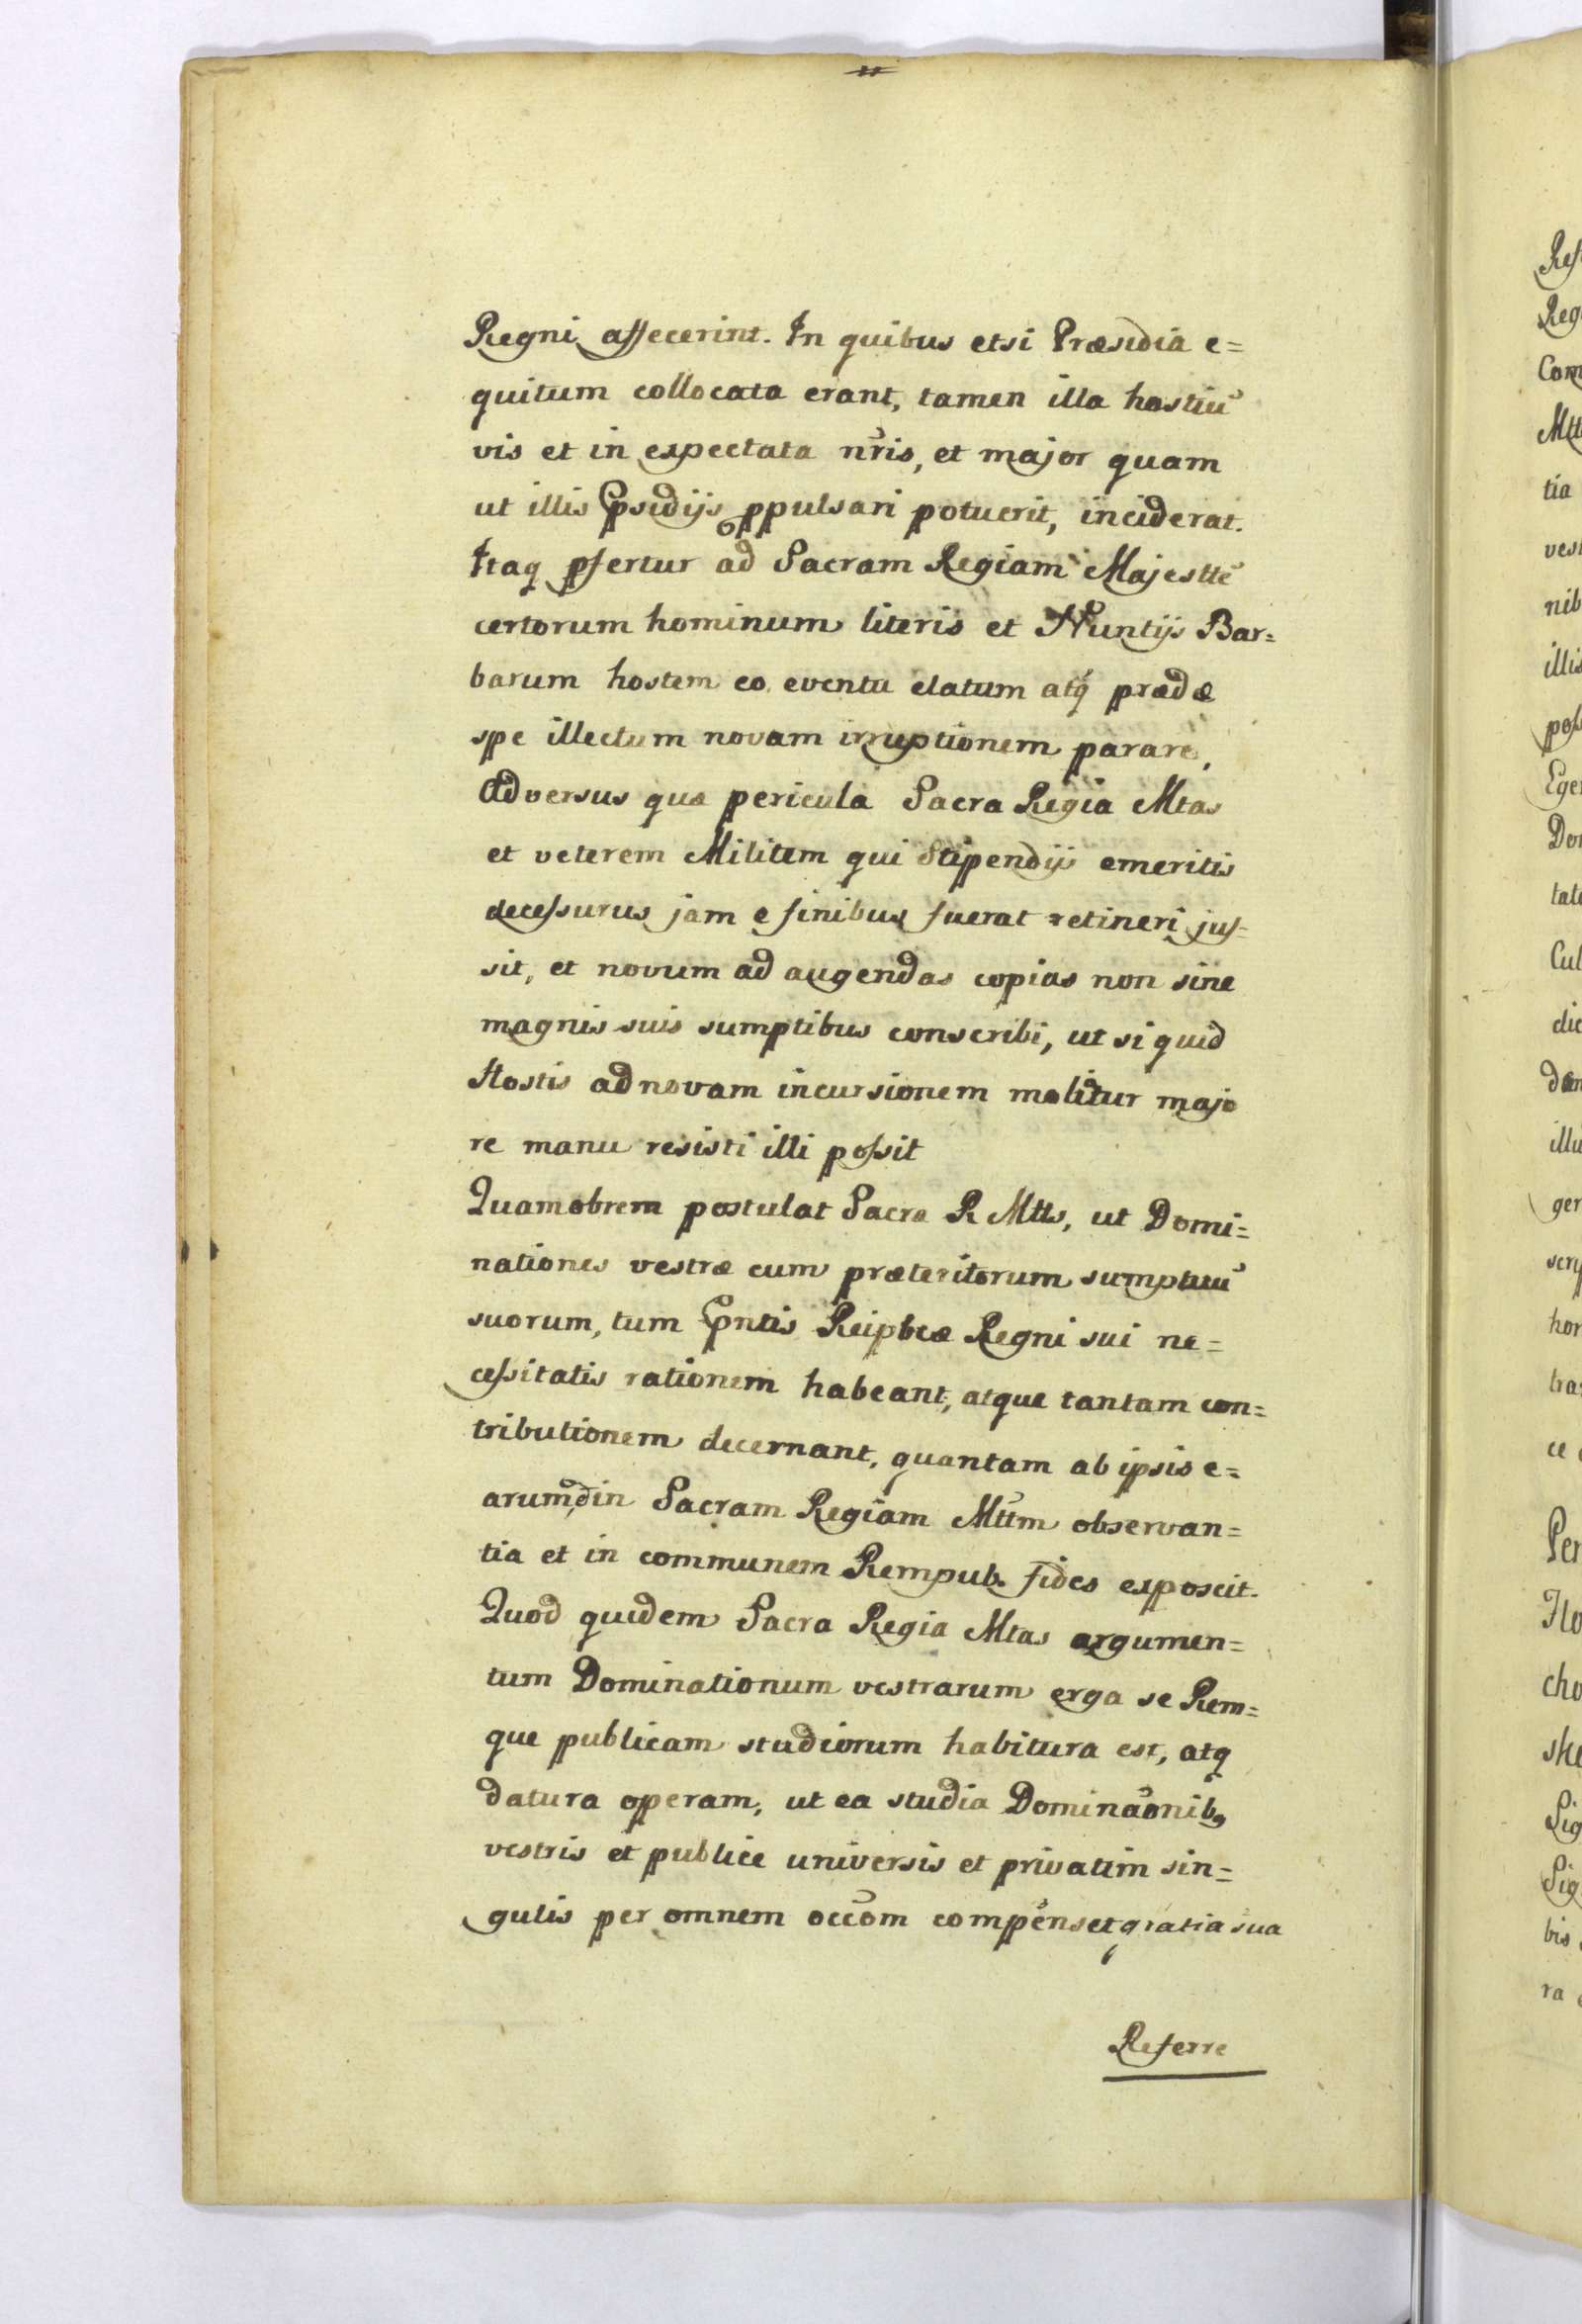 Regni affecerint. In quibus etsi Præsidia e=
quitum collocata erant, tamen illa hostiū
vis et in expectata nr̄is, et major quam
ut illis p̄sidijs ppulsari potuerit, inciderat.
Itaq pfertur ad Sacram Regiam Majesttē
certorum hominum literis et Nuntijs Bar=
barum hostem eo eventu elatum atq́ prædæ
spe illectum novam irruptionem parare,
Adversus quæ pericula Sacra Regia Mtas
et veterem Militem qui Stipendijs emeritis
decessurus jam e finibus fuerat retineri jus=
sit, et novum ad augendas copias non sine
magnis suis sumptibus conscribi, ut si quid
Hostis ad novam incursionem molitur majo
re manu resisti illi possit
Quamobrem postulat Sacra R Mtts, ut Domi=
nationes vestræ cum præteritorum sumptuū
suorum, tum p̄ntis Reipbcæ Regni sui ne=
cessitatis rationem habeant, atque tantam con=
tributionem decernant, quantam ab ipsis e=
arumd̄ in Sacram Regiam Mttm observan=
tia et in communem Rempub. fides exposcit.
Quod quidem Sacra Regia Mtas argumen=
tum Dominationum vestrarum erga se Rem=
que publicam studiorum habitura est, atq
datura operam, ut ea studia Dominaōnibꝰ
vestris et publice universis et privatim sin=
gulis per omnem occōm compenset gratia sua
Referre
Reg
Com
tia
nib
illis
Dor
hor
cho
bis
ra